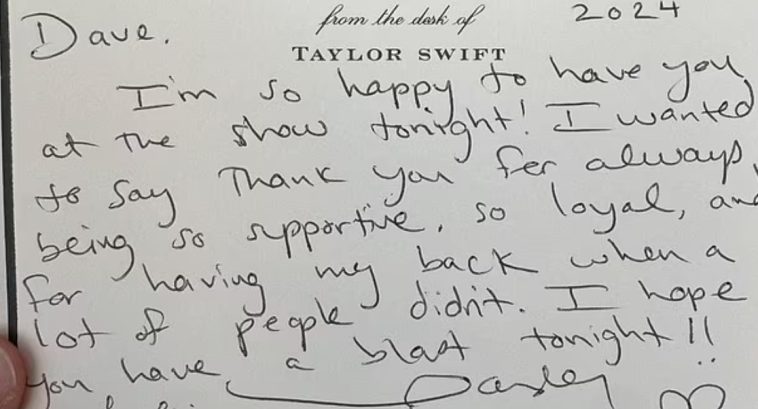 2024
from the desk of
TAYLOR SWIFT
Dave.
I'm so happy to have you
at the show tonight! I wanted
to say Thank you for always
being so supportive, so loyal, and
for having my back when a
lot of people didn't. I hope
you have a blast tonight!!